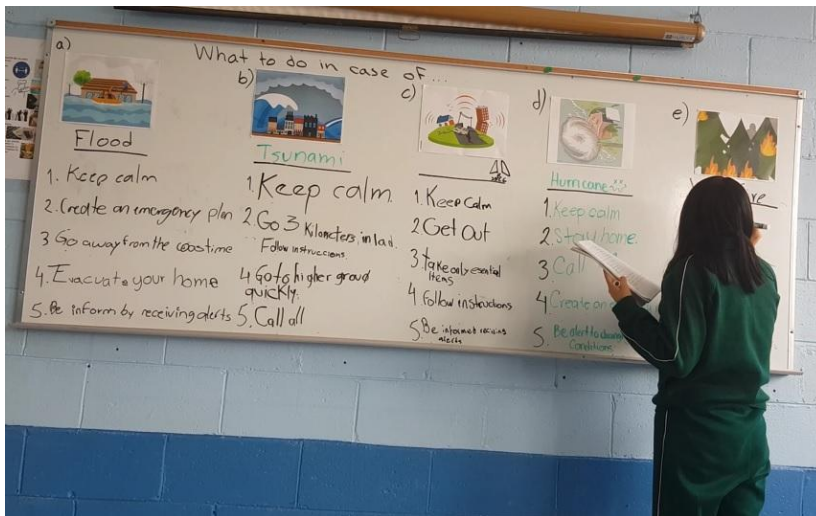 What to do in case of...
a)
Flood
1. Keep calm
2. Create an emergency plan
3 Go away from the coastime
4. Evacuate your home
5. Be inform by receiving alerts
b)
Tsunami
1. Keep calm.
2. Go 3 Kilometers in lad.
Follow instruccions.
4 Go to higher groud
quickly.
5. Call all
c)
1. Keep Calm
2 Get Out
3 take only esential
Items
4 Follow instructions
5. Be informet reciving
alerts
d)
Hurricane
1. Keep calm
2. Stay home.
3 Call
4 Create an
5. Be alert to
Conditions
e)